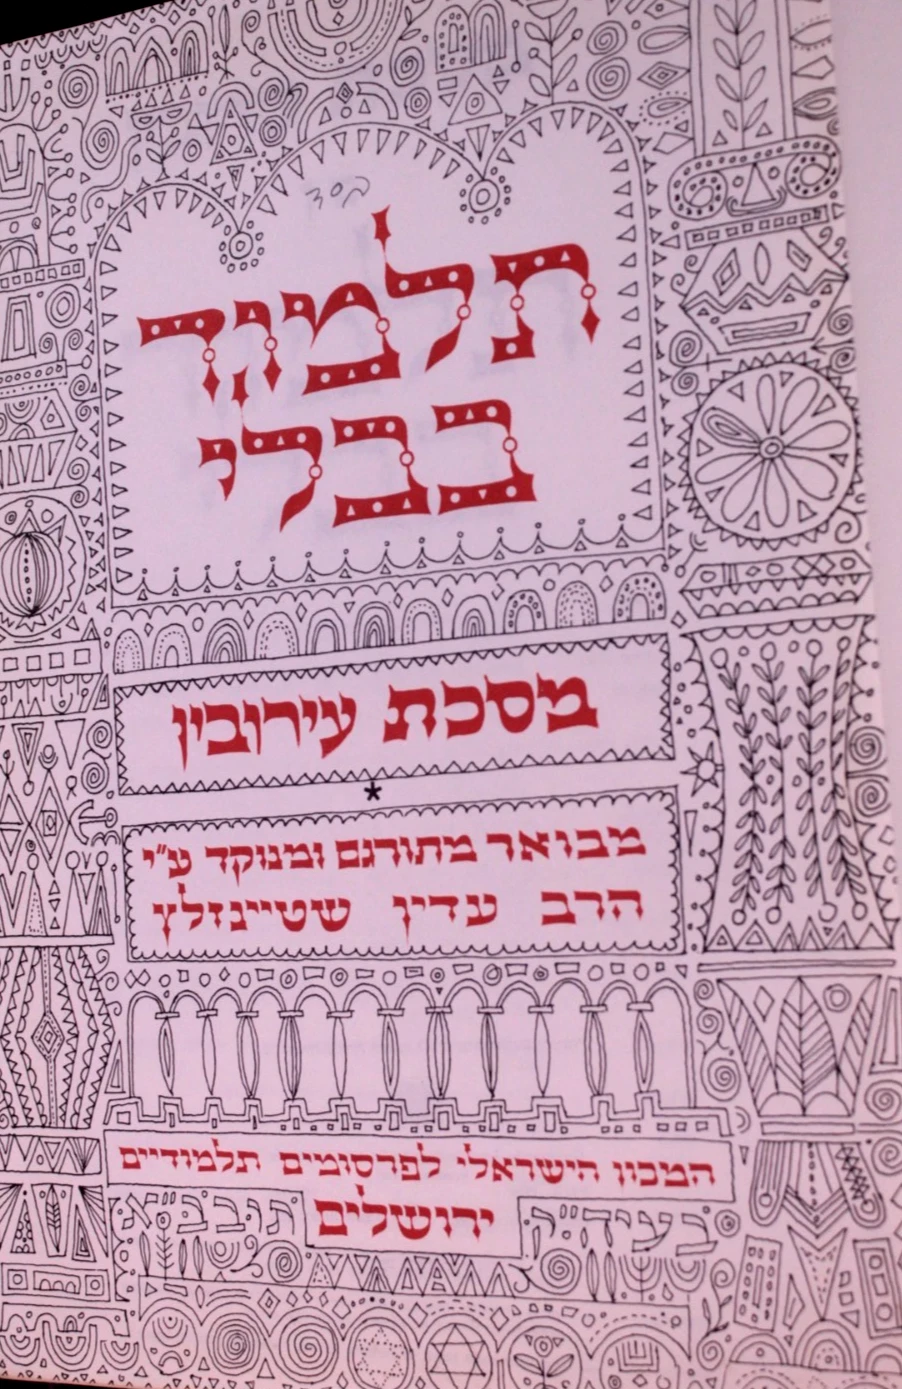 תלמוד
בבלי
מסכת עירובין
*
מבואר מתורגם ומנוקד ע״י
הרב עדין שטיינזלץ
המכון הישראלי לפרסומים תלמודיים
ירושלים
בעיה״ק תובב״א